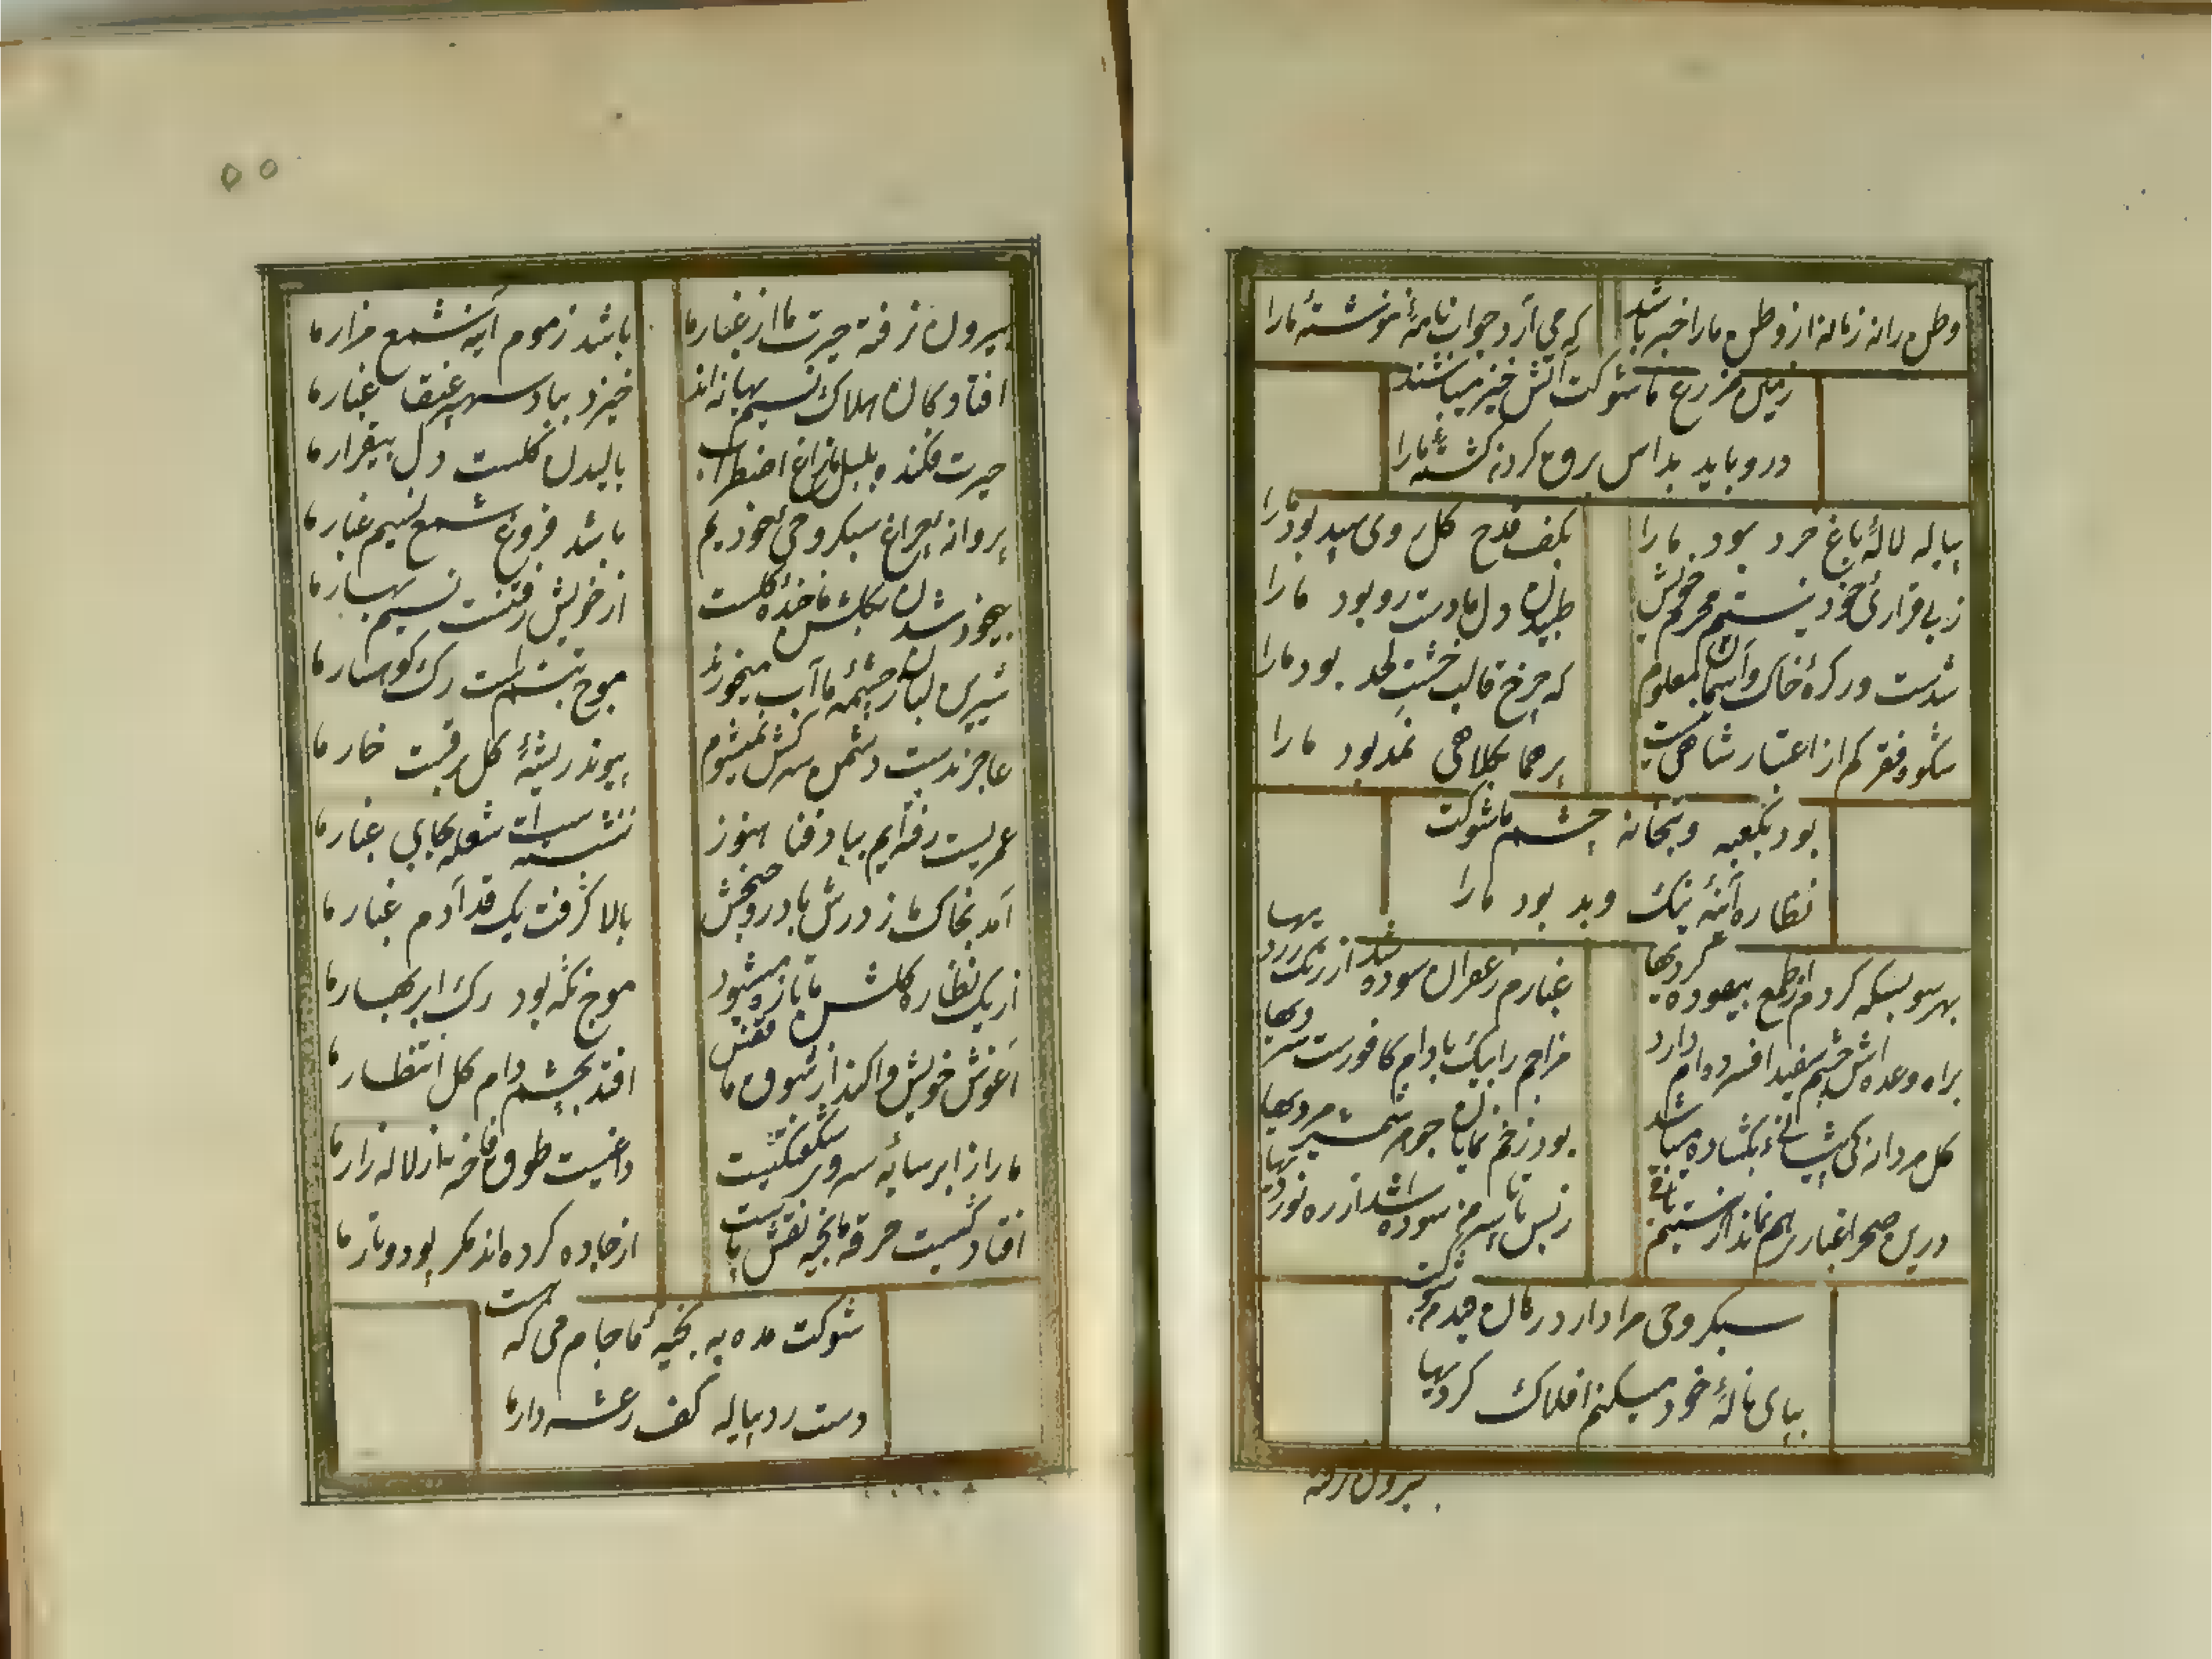 وطن را نه زما نه از وطن ما را خبر باشد
که می آرد جواب نامهٔ ننوشتهٔ ما را
زمین مزرع ما شوکت آتش خیز میباشند
درو باید بداس برق کردن کشتهٔ ما را
پیاله لالهٔ باغ خرد بود ما را
بکف قدح کل روی سبد بود ما را
ز بی قرارئ خود نیستم محرم خویش
طپیدن دل ما دست رو بود ما را
شدست در کرهٔ خاک و آسمان معلوم
که چرخ قالب خشت لحد بود ما را
شکوه فقر کم از اعتبار شاهی نیست
پر هما بکلاهی نمد بود ما را
بود بکعبه و بتخانه چشم ما شوکت
نظاره آینهٔ نیک و بد بود ما را
بهر سو بسکه کردم از طمع بیهوده کردیها
غبارم زعفران سوده شد از رنک زردیها
براه وعده اش چشم سفید افسرده ام دارد
مزاجم را بیک بادام کافورست سردیها
کل مردانکی پیشانیٔ بکشاده میباشد
بود زخم نمایان جوهر شمشیر مردیها
درین صحرا غبار هم نماند از هستیم باقی
ز بس پا تا سرم سوده شد از ره نوردیها
سبکروحی مرا دارد در مان قدم شوکت
بپای نالهٔ خود میکنم افلاک کردیها
بیرون نرفته
۵۵
بیرون نرفته حیرت ما از غبار ما
باشد ز موم آینه شمع مزار ما
افتادکان هلاک نسیم بهانه اند
خیزد بباد شهپر عنقا غبار ما
حیرت فکنده بلبل ما را ز اضطراب
بالیدن کلست دل بیقرار ما
پروانهٔ چراغ سبکروحیٔ خودیم
باشد فروغ شمع نسیم غبار ما
بیخود شدن بکلشن ما خندهٔ کلست
از خویش رفتنست نسیم بهار ما
شیرین لبان ز چشمهٔ ما آب میخورند
موج تبسم است رک کوهسار ما
عاجز ندیست دشمن سرکش نمیشوم
پیوند ریشهٔ کل برقست خار ما
عمریست رفته ایم بباد فنا هنوز
ننشسته است شعله بجای غبار ما
آمد بخاک ما ز درش باد روحبخش
بالا کرفت یک قد آدم غبار ما
از یک نظاره کلشن ما تازه میشود
موج نکه بود رک ابر بهار ما
آغوش خویش وا کند از شوق ما قفس
افتد بچشم دام کل انتظار ما
ما را ز ابر سایهٔ سرو شکفتکیست
داغیست طوق فاخته از لاله زار ما
افتادکیست خرقه ما بخیه نقش پاست
از جاده کرده اند مکر پود و تار ما
شوکت مده به بخیهٔ ما جام می که هست
دست رد پیاله کف رعشه دار ما